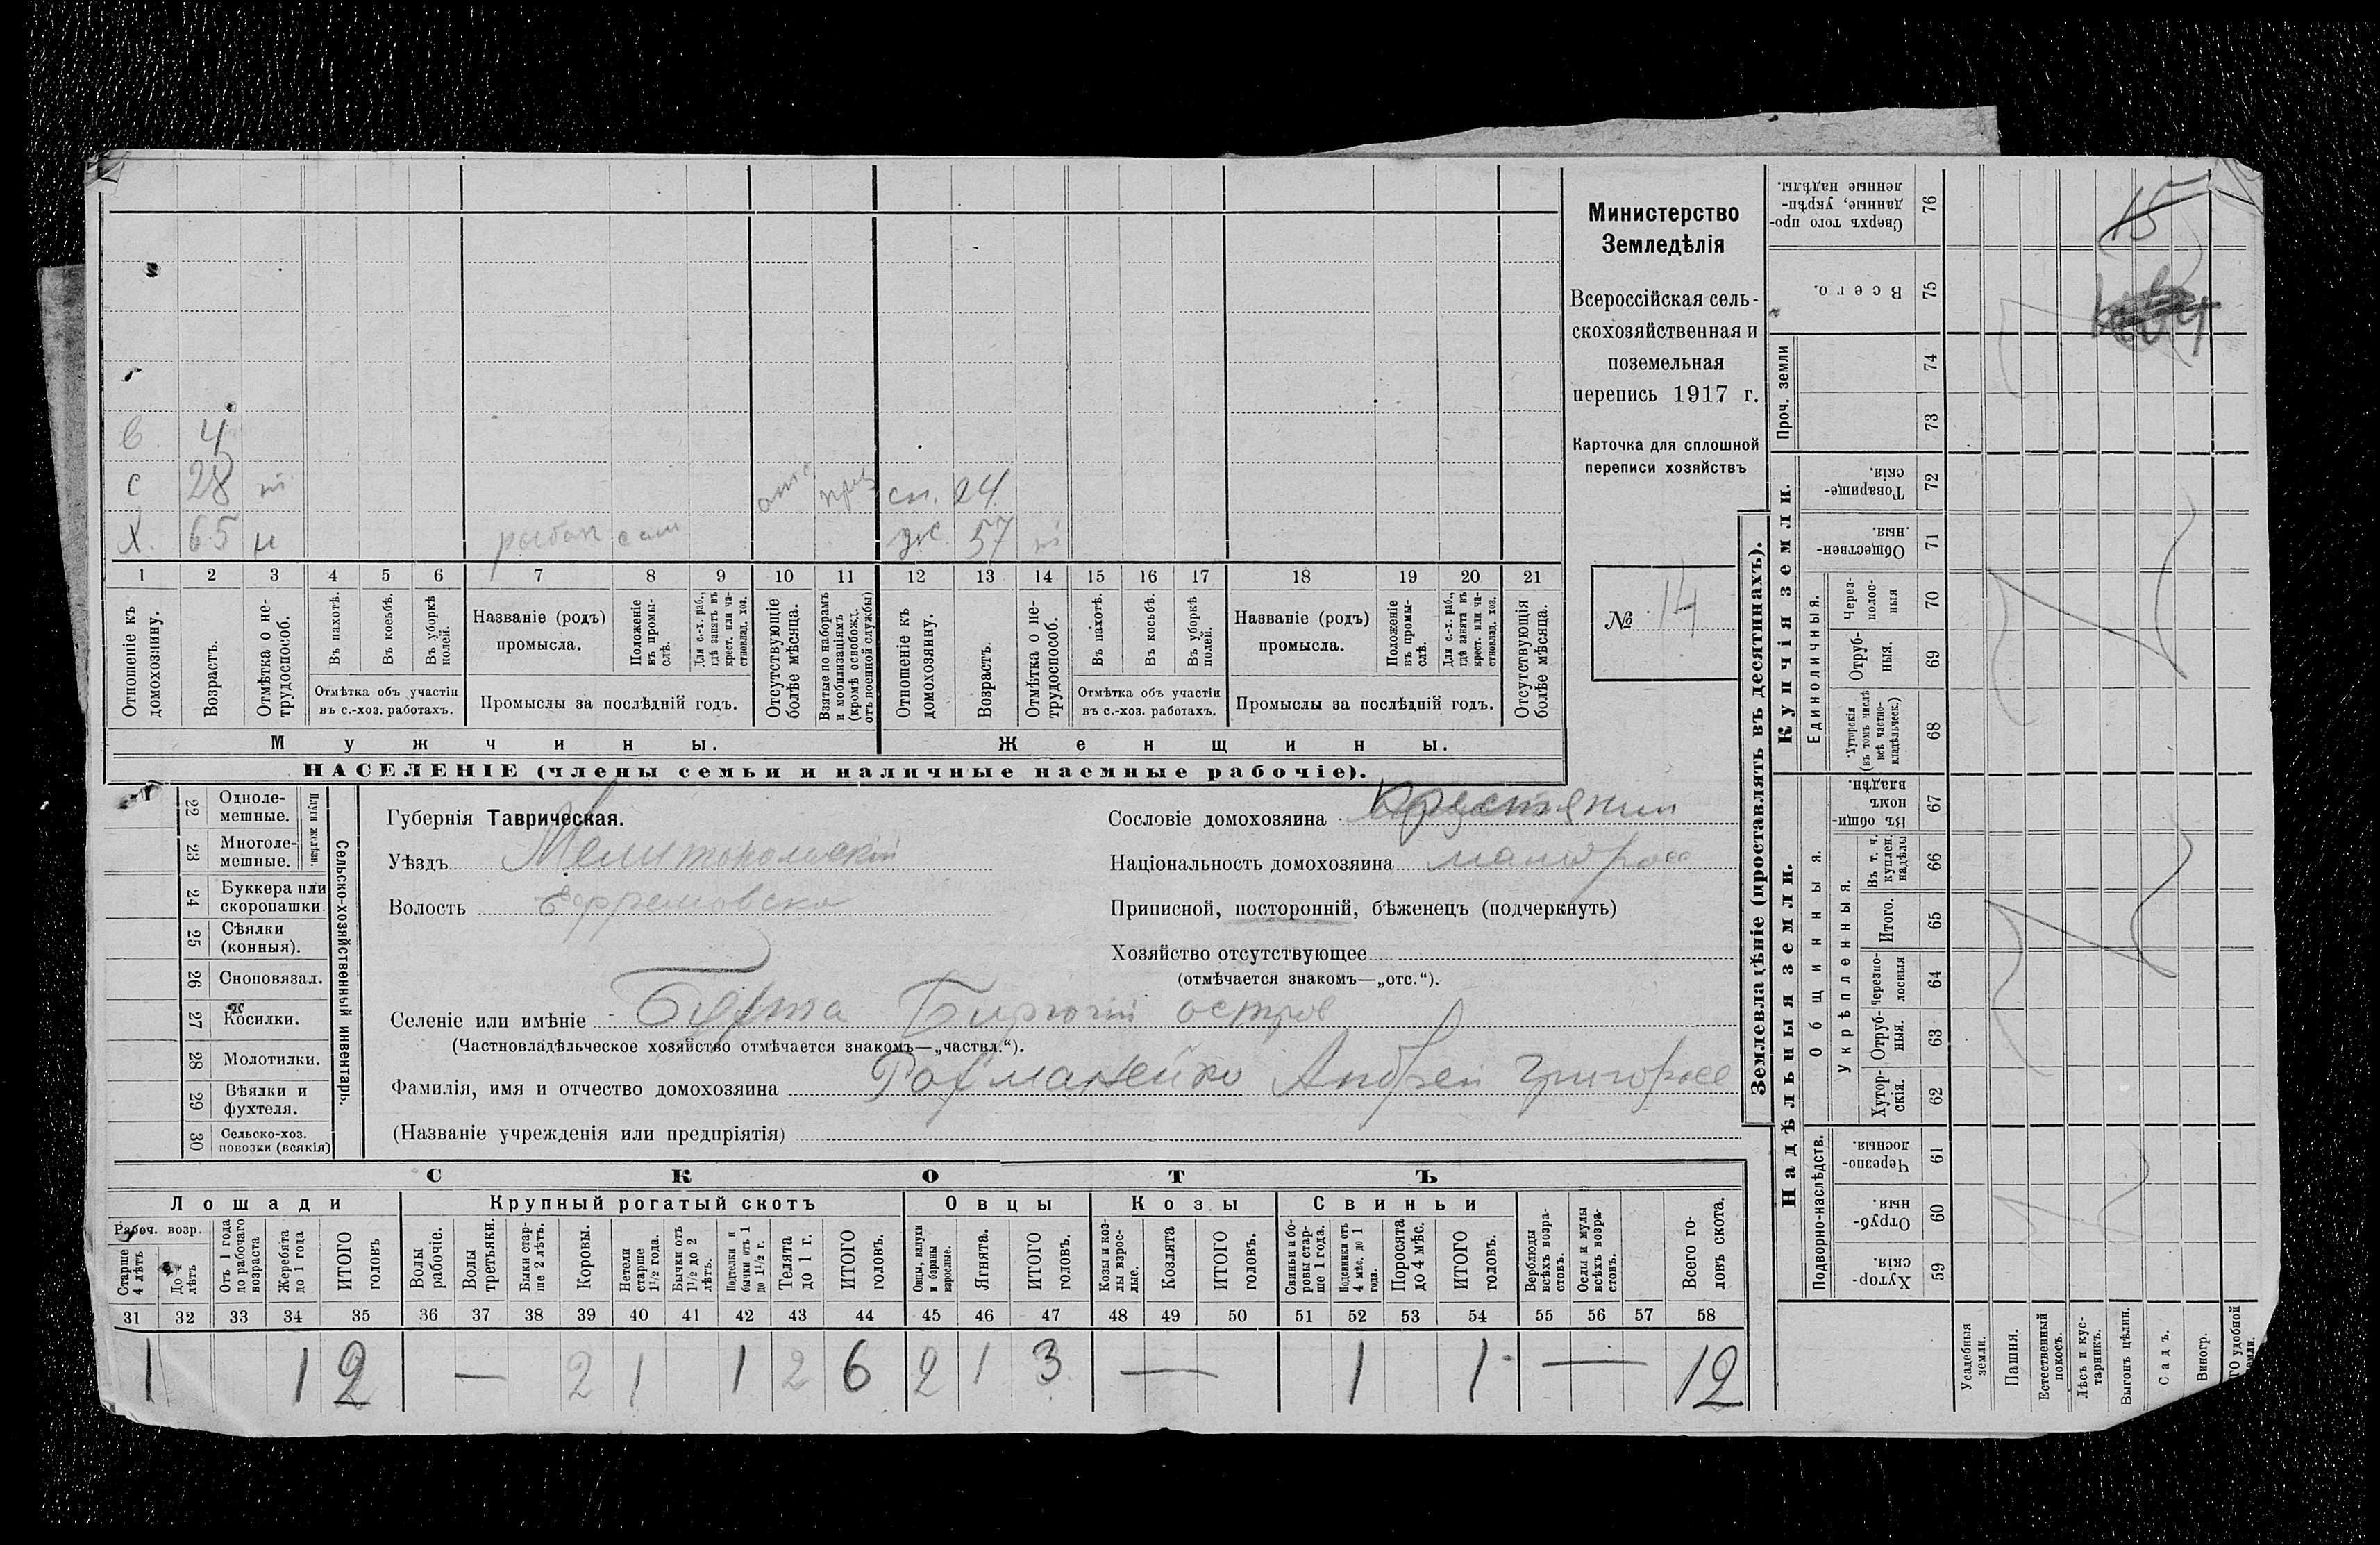 Министерство
Земледѣлія
Всероссійская сель-
скохозяйственная и
поземельная
перепись 1917 г.
Карточка для сплошной
переписи хозяйствъ
№ 14
в 4
с 28 отс сн. 24
х. 65 н рыбак сам ж. 57
1 2 3 4 5 6 7 8 9 10 11 12 13 14 15 16 17 18 19 20 21
Отношеніе къ домохозяину.
Возрастъ.
Отмѣтка о не-трудоспособ.
Въ пахотѣ.
Въ косьбѣ.
Въ уборкѣ полей.
Отмѣтка объ участіи
въ с.-хоз. работахъ.
Названіе (родъ)
промысла.
Положеніе въ промы-слѣ.
Для с.-х. раб., гдѣ занятъ въ крест. или ча-стновлад. хоз.
Промыслы за послѣдній годъ.
Отсутствующіе болѣе мѣсяца.
Взятые по наборамъ и мобилизаціямъ (кромѣ освобожд. отъ военной службы)
Отношеніе къ домохозяину.
Возрастъ.
Отмѣтка о не-трудоспособ.
Въ пахотѣ.
Въ косьбѣ.
Въ уборкѣ полей.
Отмѣтка объ участіи
въ с.-хоз. работахъ.
Названіе (родъ)
промысла.
Положеніе въ промы-слѣ.
Для с.-х. раб., гдѣ занята въ крест. или ча-стновлад. хоз.
Промыслы за послѣдній годъ.
Отсутствующія болѣе мѣсяца.
Мужчины. Женщины.
НАСЕЛЕНІЕ (члены семьи и наличные наемные рабочіе).
Сельско-хозяйственный инвентарь.
Плуги желѣзн.
22 Одноле-мешные.
23 Многоле-мешные.
24 Буккера или скоропашки
25 Сѣялки (конныя).
26 Сноповязал.
27 Косилки.
28 Молотилки.
29 Вѣялки и фухтеля.
30 Сельско-хоз. повозки (всякія)
Губернія Таврическая.
Уѣздъ Мелитопольскій
Волость Ефремовска
Сословіе домохозяина крестянин
Національность домохозяина малорос
Приписной, посторонній, бѣженецъ (подчеркнуть)
Хозяйство отсутствующее
(отмѣчается знакомъ—„отс.“).
Селеніе или имѣніе Бирючій остров
(Частновладѣльческое хозяйство отмѣчается знакомъ—„частвл.“).
Фамилія, имя и отчество домохозяина Рахманейко Андрей Григорьев
(Названіе учрежденія или предпріятія)
СКОТЪ
Лошади Крупный рогатый скотъ Овцы Козы Свиньи
Рабоч. возр.
Старше 4 лѣтъ
До 4 лѣтъ
Отъ 1 года до рабочаго возраста
Жеребята до 1 года
ИТОГО головъ
Волы рабочіе.
Волы третьяки.
Быки стар-ше 2 лѣтъ.
Коровы.
Нетели старше 1½ года.
Бычки отъ 1½ до 2 лѣтъ.
Подтелки и бычки отъ 1 до 1½ г.
Телята до 1 г.
ИТОГО головъ.
Овцы, валухи и бараны взрослые.
Ягнята.
ИТОГО головъ.
Козы и коз-лы взрос-лые.
Козлята
ИТОГО головъ.
Свиньи и бо-ровы стар-ше 1 года.
Подсвинки отъ 4 мѣс. до 1 года.
Поросята до 4 мѣс.
ИТОГО головъ.
Верблюды всѣхъ возра-стовъ.
Ослы и мулы всѣхъ возра-стовъ.
Всего го-ловъ скота.
31 32 33 34 35 36 37 38 39 40 41 42 43 44 45 46 47 48 49 50 51 52 53 54 55 56 57 58
1 1 2 — 2 1 1 2 6 2 1 3 — 1 1 — 12
Землевладѣніе (проставлять въ десятинахъ).
Надѣльныя земли. Купчія земли. Проч. земли
Подворно-наслѣдств.
Общинныя.
Укрѣпленныя.
Единоличныя.
Хутор-скія. 59
Отруб-ныя. 60
Черезпо-лосныя. 61
Хутор-скія. 62
Отруб-ныя. 63
Черезпо-лосныя 64
Итого. 65
Въ т. ч. куплен. надѣлы 66
Въ общи-номъ владѣн. 67
Хуторскія (въ томъ числѣ всѣ частно-владѣльческ.) 68
Отруб-ныя. 69
Через-полос-ныя 70
Обществен-ныя. 71
Товарище-скія. 72
73
74
Всего. 75
Сверхъ того про-данные, укрѣп-ленные надѣлы. 76
15
Усадебныя земли.
Пашня.
Естественный покосъ.
Лѣсъ и кус-тарникъ.
Выгонъ цѣлин.
Садъ.
Виногр.
ТО удобной земли.